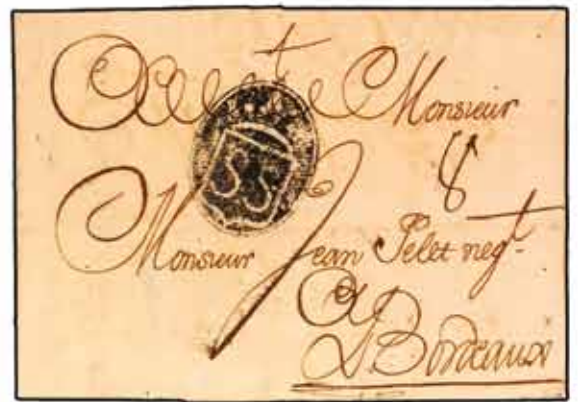 Monsieur
SS
8
Monsieur Jean Pelet negt.
A
Bordeaux